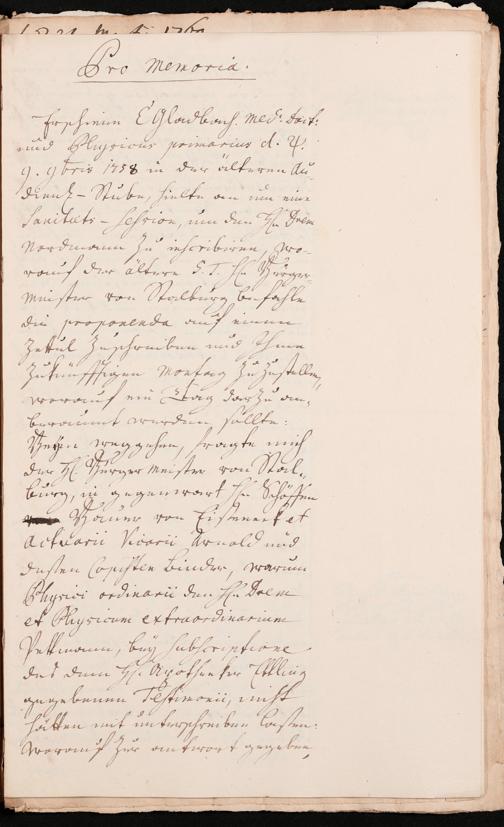 Pro Memoria.
Erschiene E Gladbach. Med: Doct:
und Physicus primarius d. 4.
9. 9bris 1758 in der älteren Au-
dientz-Stube, hielte an um eine
Sanitäts-Session, um den H. Drem
Nordmann zu inscribiren, wo-
rauf der ältere S. T. H. Burger-
meister von Stalburg befahle
die proponenda auf einen
Zettul zuschreiben und Ihme
zukünfftigen Montag zuzustellen,
worauf ein Tag darzu an-
beraumt werden sollte:
Beym weggehen, fragte mich
der H. Burgermeister von Stal-
burg, in gegenwart H. Schöffen
Bauer von Eiseneck et
Actuarii Vicarii Arnold und
dessen Copisten Binder, warum
Physici ordinarii den H. Drem
et Physicum extraordinarium
Pettmann, bey subscriptione
des dem H. Apothecker Ettling
gegebenen Testimonii, nicht
hätten mit unterschreiben lassen:
worauf zur antwort gegeben,